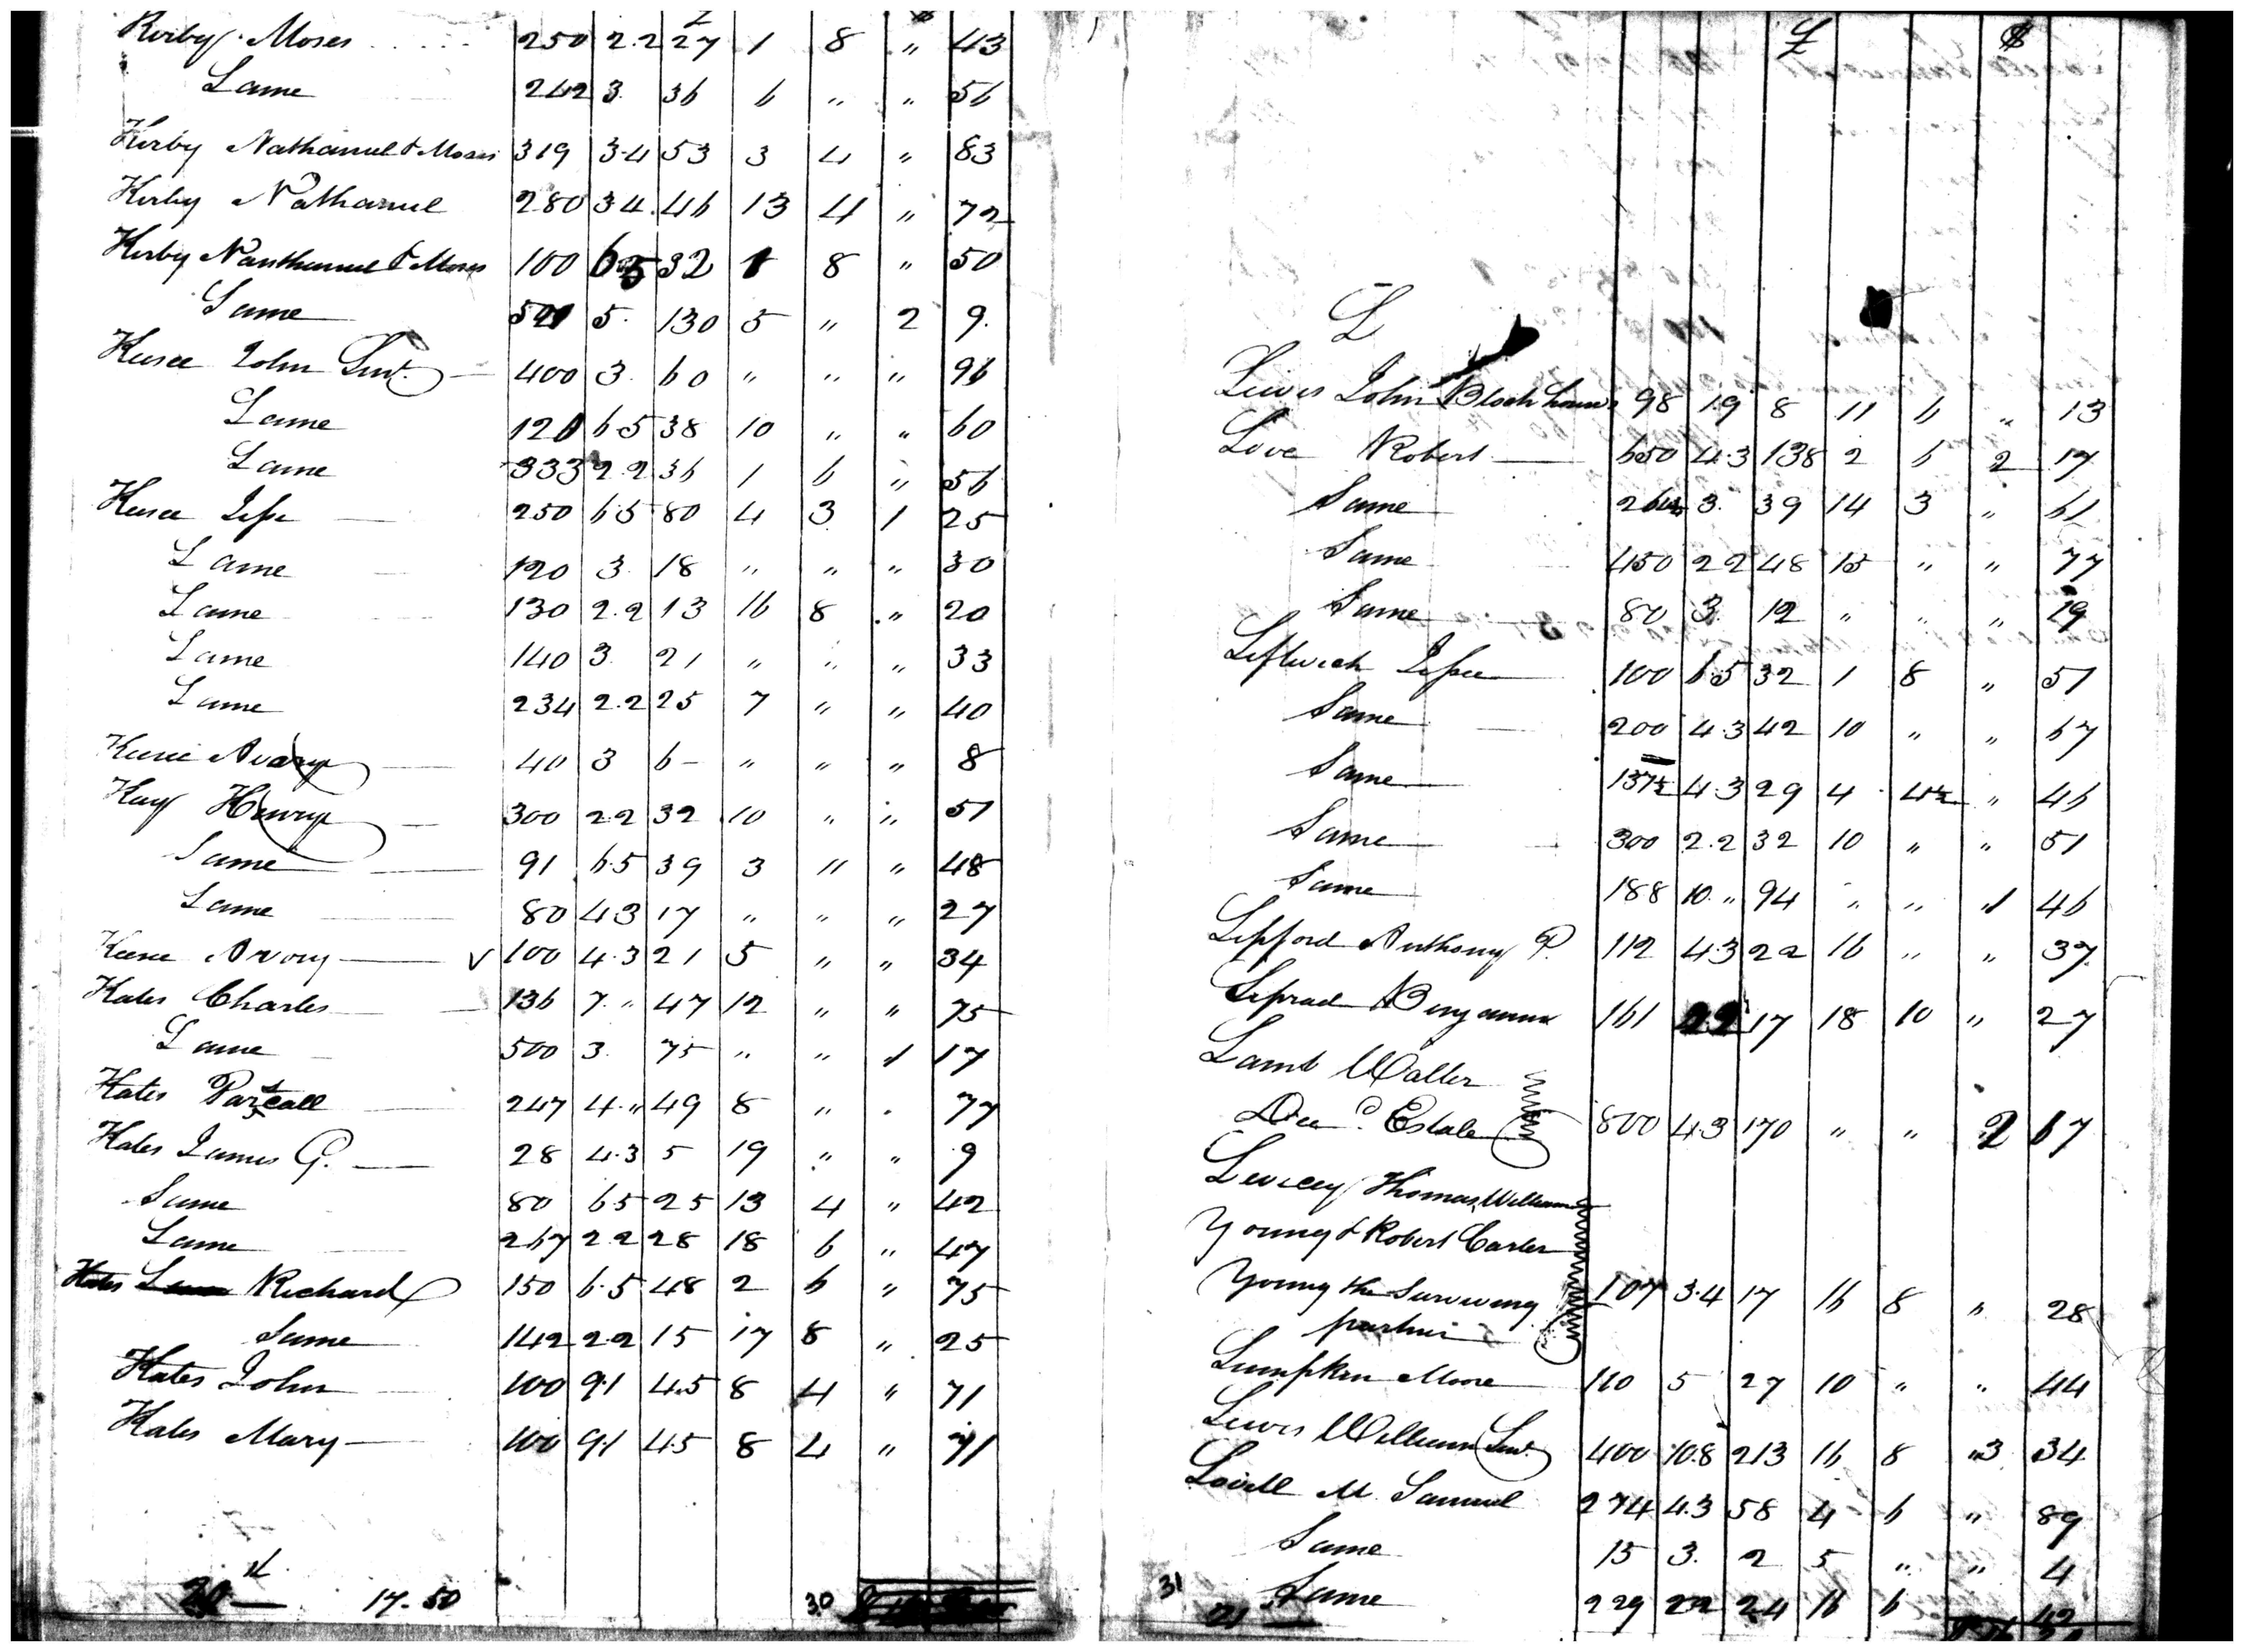 £ $
Kirby Moses 250 2.2 27 1 8 " 43
Same 242 3. 36 6 " " 56
Kirby Nathaniel & Moses 319 3.4 53 3 4 " 83
Kirby Nathaniel 280 3 4. 46 13 4 " 72
Kirby Nanthaniel & Moses 100 6.5 32 1 8 " 50
Same 521 5. 130 5 " 2 9.
John Sen.r 400 3. 60 " " " 96
Same 120 6.5 38 10 " " 60
Same 333 2.2 36 1 6 " 56
250 6.5 80 4 3 1 25
Same 120 3. 18 " " " 30
Same 130 2.2 13 16 8 " 20
Same 140 3. 21 " " " 33
Same 234 2.2 25 7 " " 40
Avary 40 3 6 - " " " 8
Kay Henry 300 2.2 32 10 " " 51
Same 91 6.5 39 3 " " 48
Same 80 4 3 17 " " " 27
Avory 100 4.3 21 5 " " 34
Kates Charles 136 7. " 47 12 " " 75
Same 500 3. 75 " " 1 17
Kates 247 4. " 49 8 " " 77
Kates James G. 28 4.3 5 19 " " 9
Same 80 6 5 25 13 4 " 42
Same 267 2.2 28 18 6 " 47
Kates Richard 150 6.5 48 2 6 " 75
Same 142 2.2 15 17 8 " 25
Kates John 100 9.1 45 8 4 " 71
Kates Mary 100 9.1 45 8 4 " 71
20 17.50 30
£ $
L
Lewis John Block house 98 1.9 8 11 6 " 13
Love Robert 650 4.3 138 2 6 2 17
Same 3. 39 14 3 " 61
Same 450 2 2 48 15 " " 77
Same 80 3. 12 " " " 19
Leftwich 100 6.5 32 1 8 " 51
Same 200 4.3 42 10 " " 67
Same 137½ 4.3 29 4 4½ " 46
Same 300 2.2 32 10 " " 51
Same 188 10. " 94 " " 1 46
Lipford Anthony P. 112 4.3 22 16 " " 37.
Benjamin 161 2.2 17 18 10 " 27
Lamb Walter
Dec.d Estate 800 4.3 170 " " 2 67
Thomas, William
Young & Robert Carter
Young the Surviving 107 3.4 17 16 8 " 28
partner
Lumpkin Moore 110 5 27 10 " " 44
Lewis William Sen.r 400 10.8 213 16 8 " 3 34
Lovell M. Samuel 274 4.3 58 4 6 " 89
Same 15 3. 2 5 " " 4
31 Same 229 2.2 24 16 6 42
21